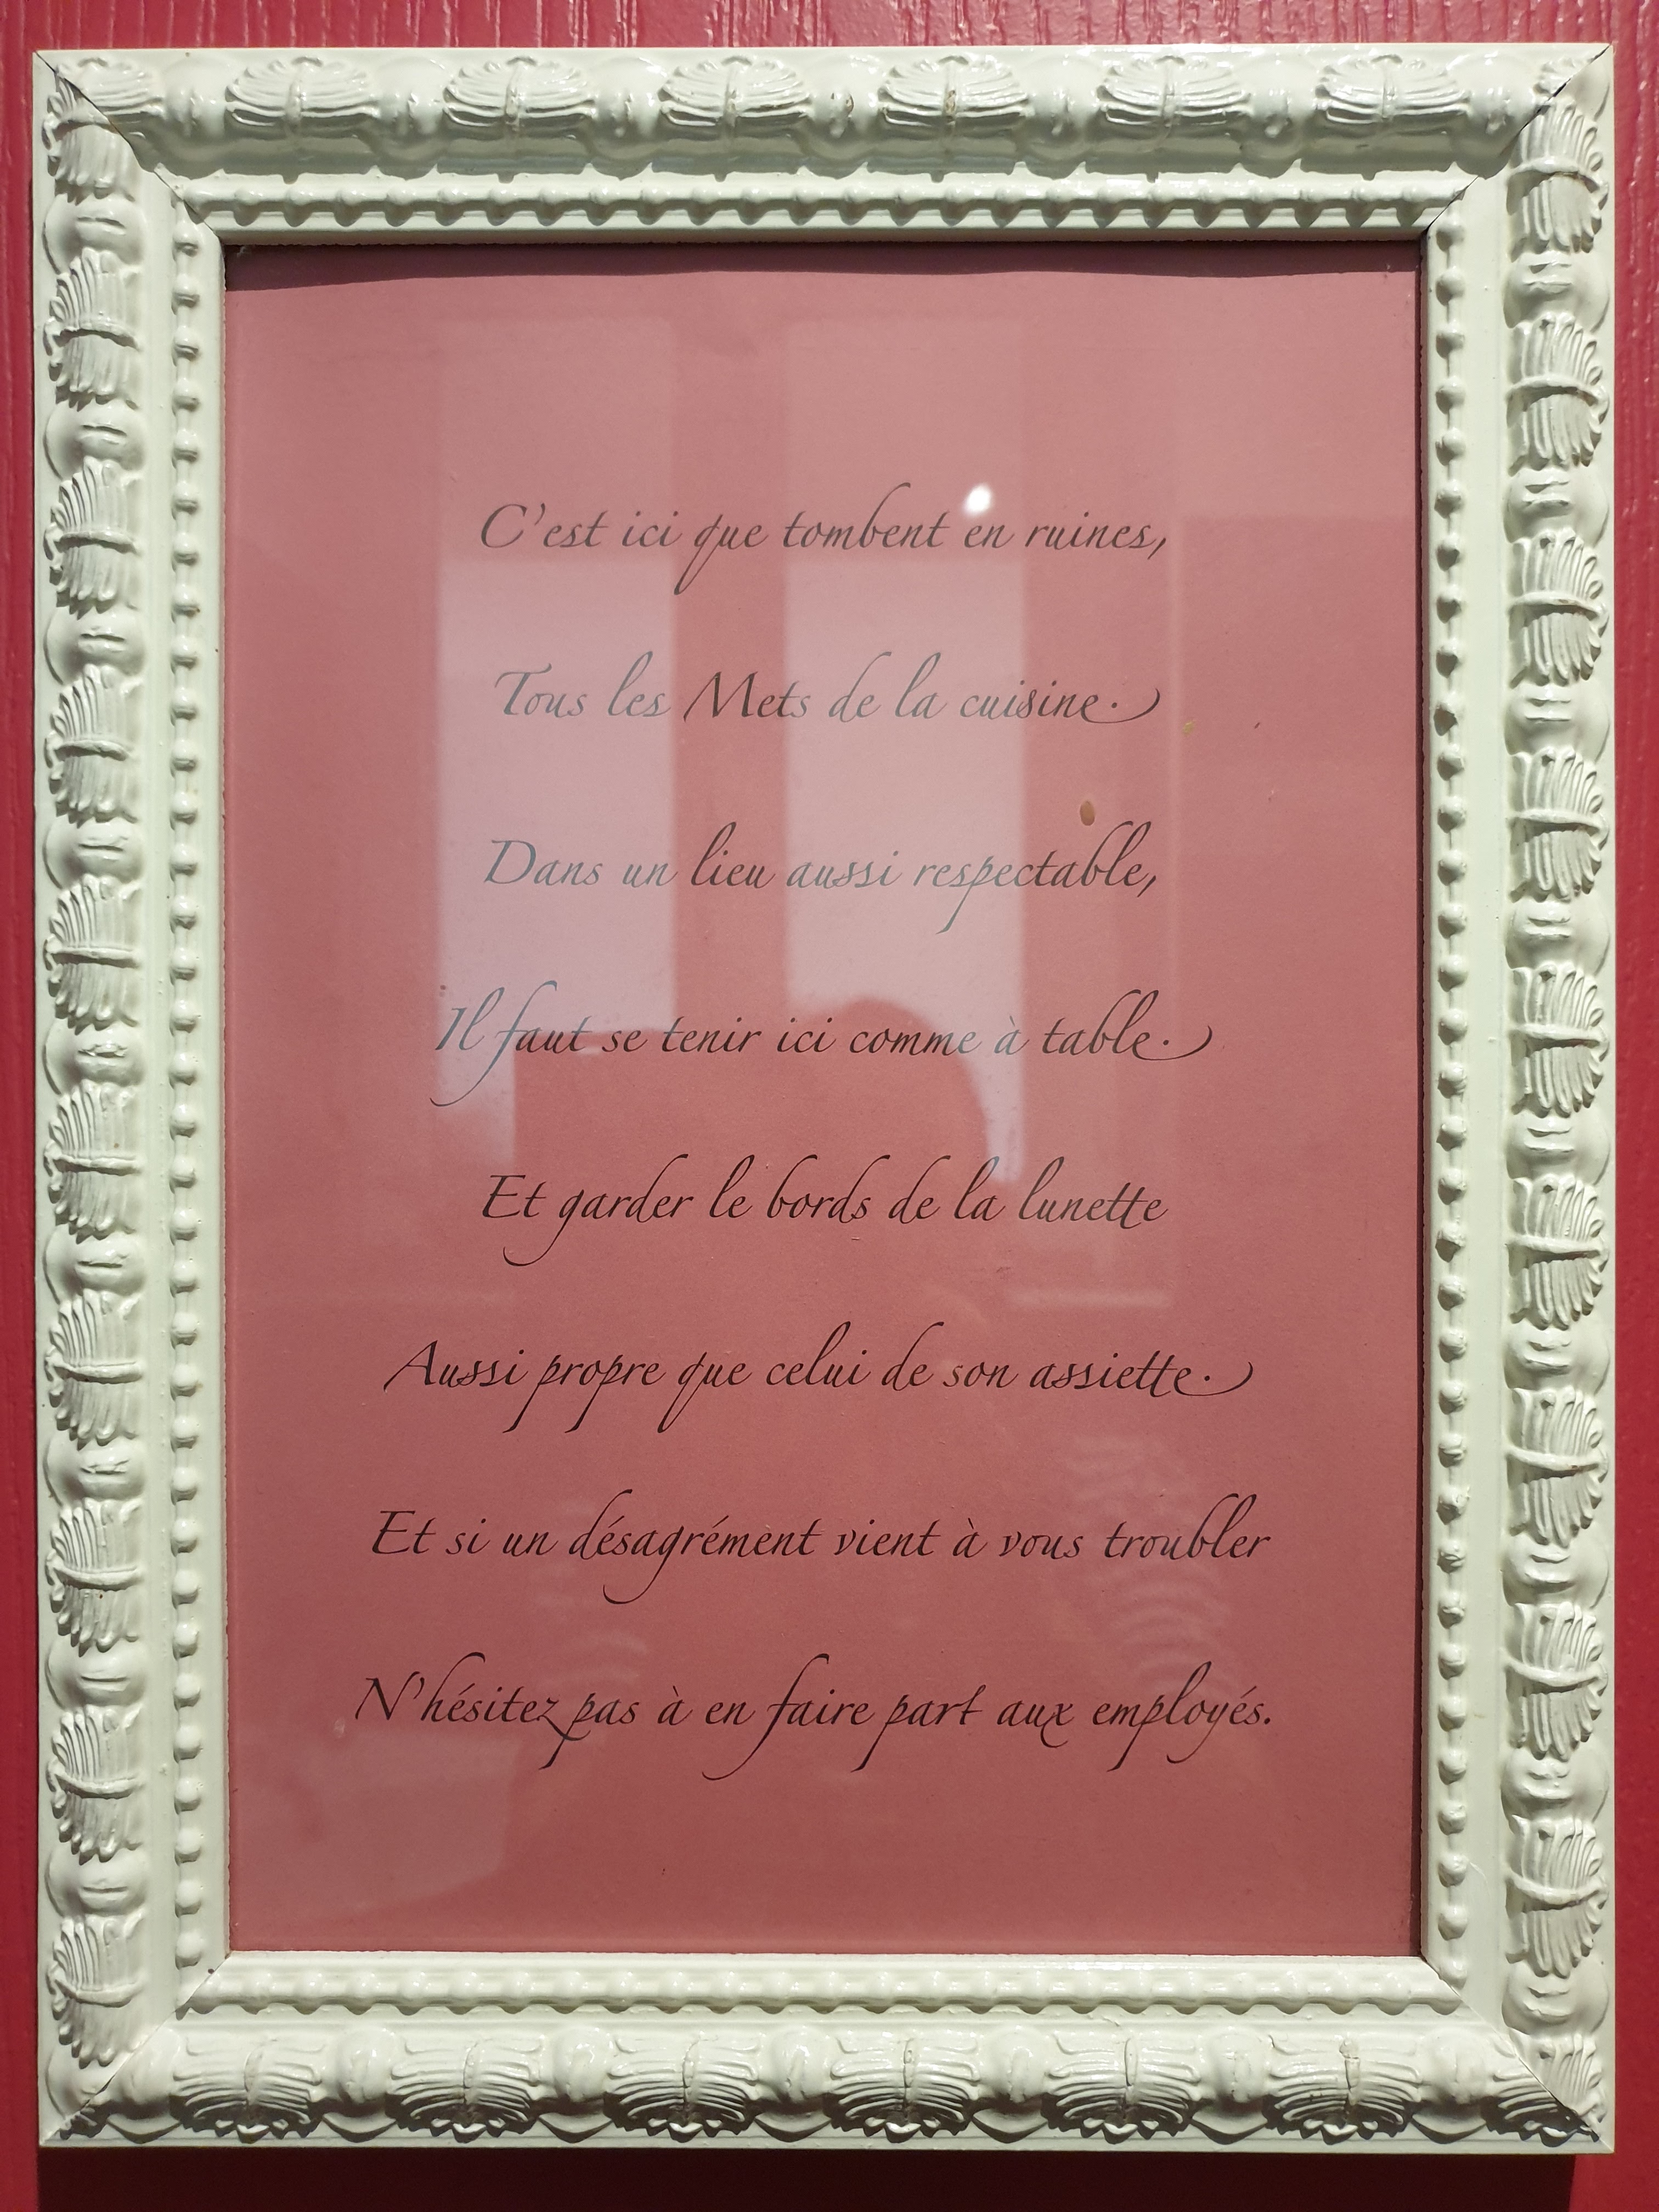 C'est ici que tombent en ruines,
Tous les Mets de la cuisine.
Dans un lieu aussi respectable,
Il faut se tenir ici comme à table.
Et garder le bords de la lunette
Aussi propre que celui de son assiette.
Et si un désagrément vient à vous troubler
N'hésitez pas à en faire part aux employés.